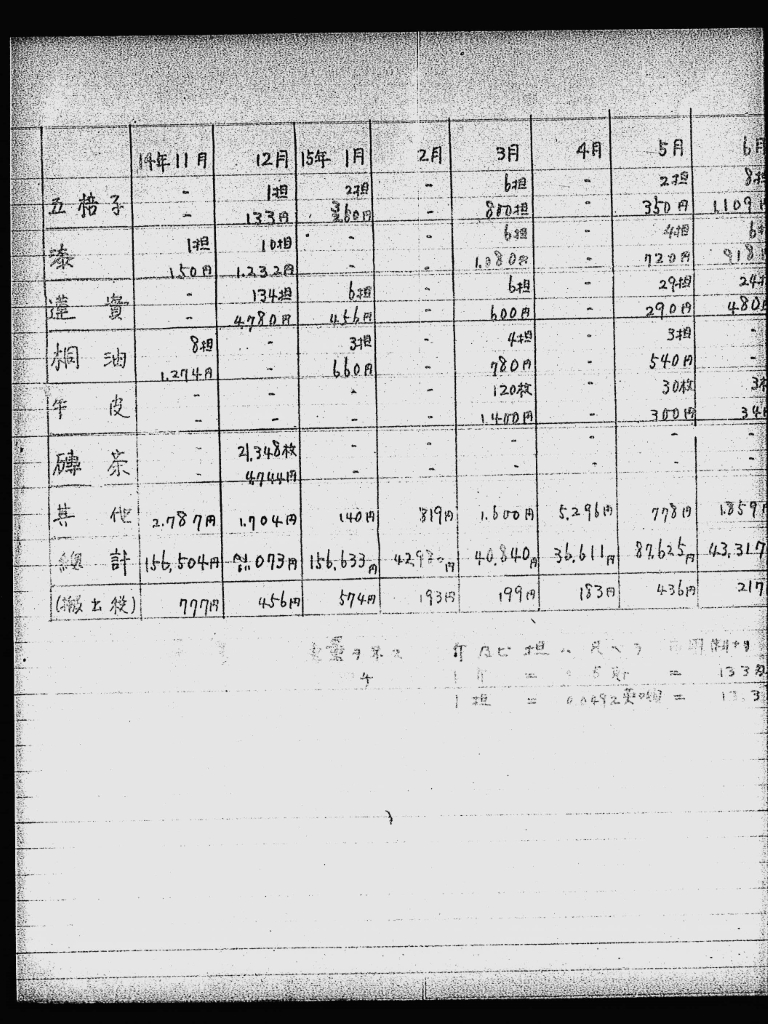 19年11月 12月 15年 1月 2月 3月 4月 5月 6月
- 1担 2担 - 6担 - 2担 8担
五棓子
- 133円 360円 - 800担 - 350円 1,109円
1担 10担 - - 6担 - 4担 6担
漆
150円 1.232円 - - 1,080円 - 720円 918円
- 134担 6担 - 6担 - 29担 24担
蓮 實
- 4,780円 456円 - 600円 - 290円 480円
8担 - 3担 - 4担 - 3担 -
桐 油
1,274円 - 660円 - 780円 - 540円 -
- - - - 120枚 - 30枚
牛 皮
- - - - 1,400円 - 300円
- 21,348枚 - - - - - -
磚 茶
- 4,744円 - - - - - -
其 他 2.787円 1.704円 140円 819円 1.600円 5.296円 778円 1.859円
總 計 156,504円 073円 156,633円 40,840円 36,611円 87,625円 43,317
(搬出後) 777円 456円 574円 193円 199円 183円 436円 217
担
1 = 5 = 133
1担 = 0.0492 = 13.3